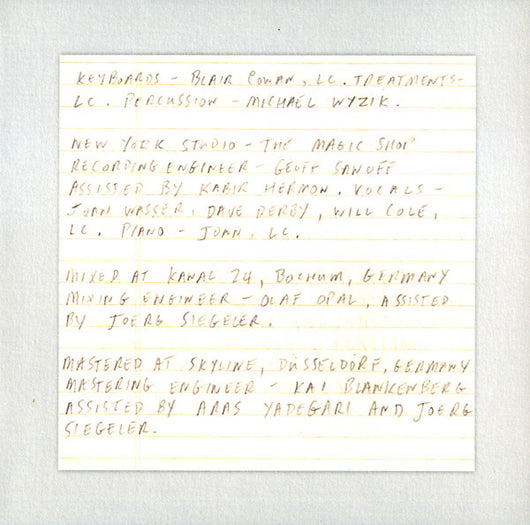 KEYBOARDS - BLAIR COWAN, LC. TREATMENTS-
LC. PERCUSSION - MICHAEL WYZIK.
NEW YORK STUDIO - THE MAGIC SHOP
RECORDING ENGINEER - GEOFF SANOFF
ASSISTED BY KABIR HERMON. VOCALS -
JOAN WASSER, DAVE DERBY, WILL COLE,
LC. PIANO - JOAN, LC.
MIXED AT KANAL 24, BOCHUM, GERMANY
MIXING ENGINEER - OLAF OPAL, ASSISTED
BY JOERG SIEGELER.
MASTERED AT SKYLINE, DÜSSELDORF, GERMANY
MASTERING ENGINEER - KAI BLANKENBERG
ASSISTED BY ARAS YADEGARI AND JOERG
SIEGELER.